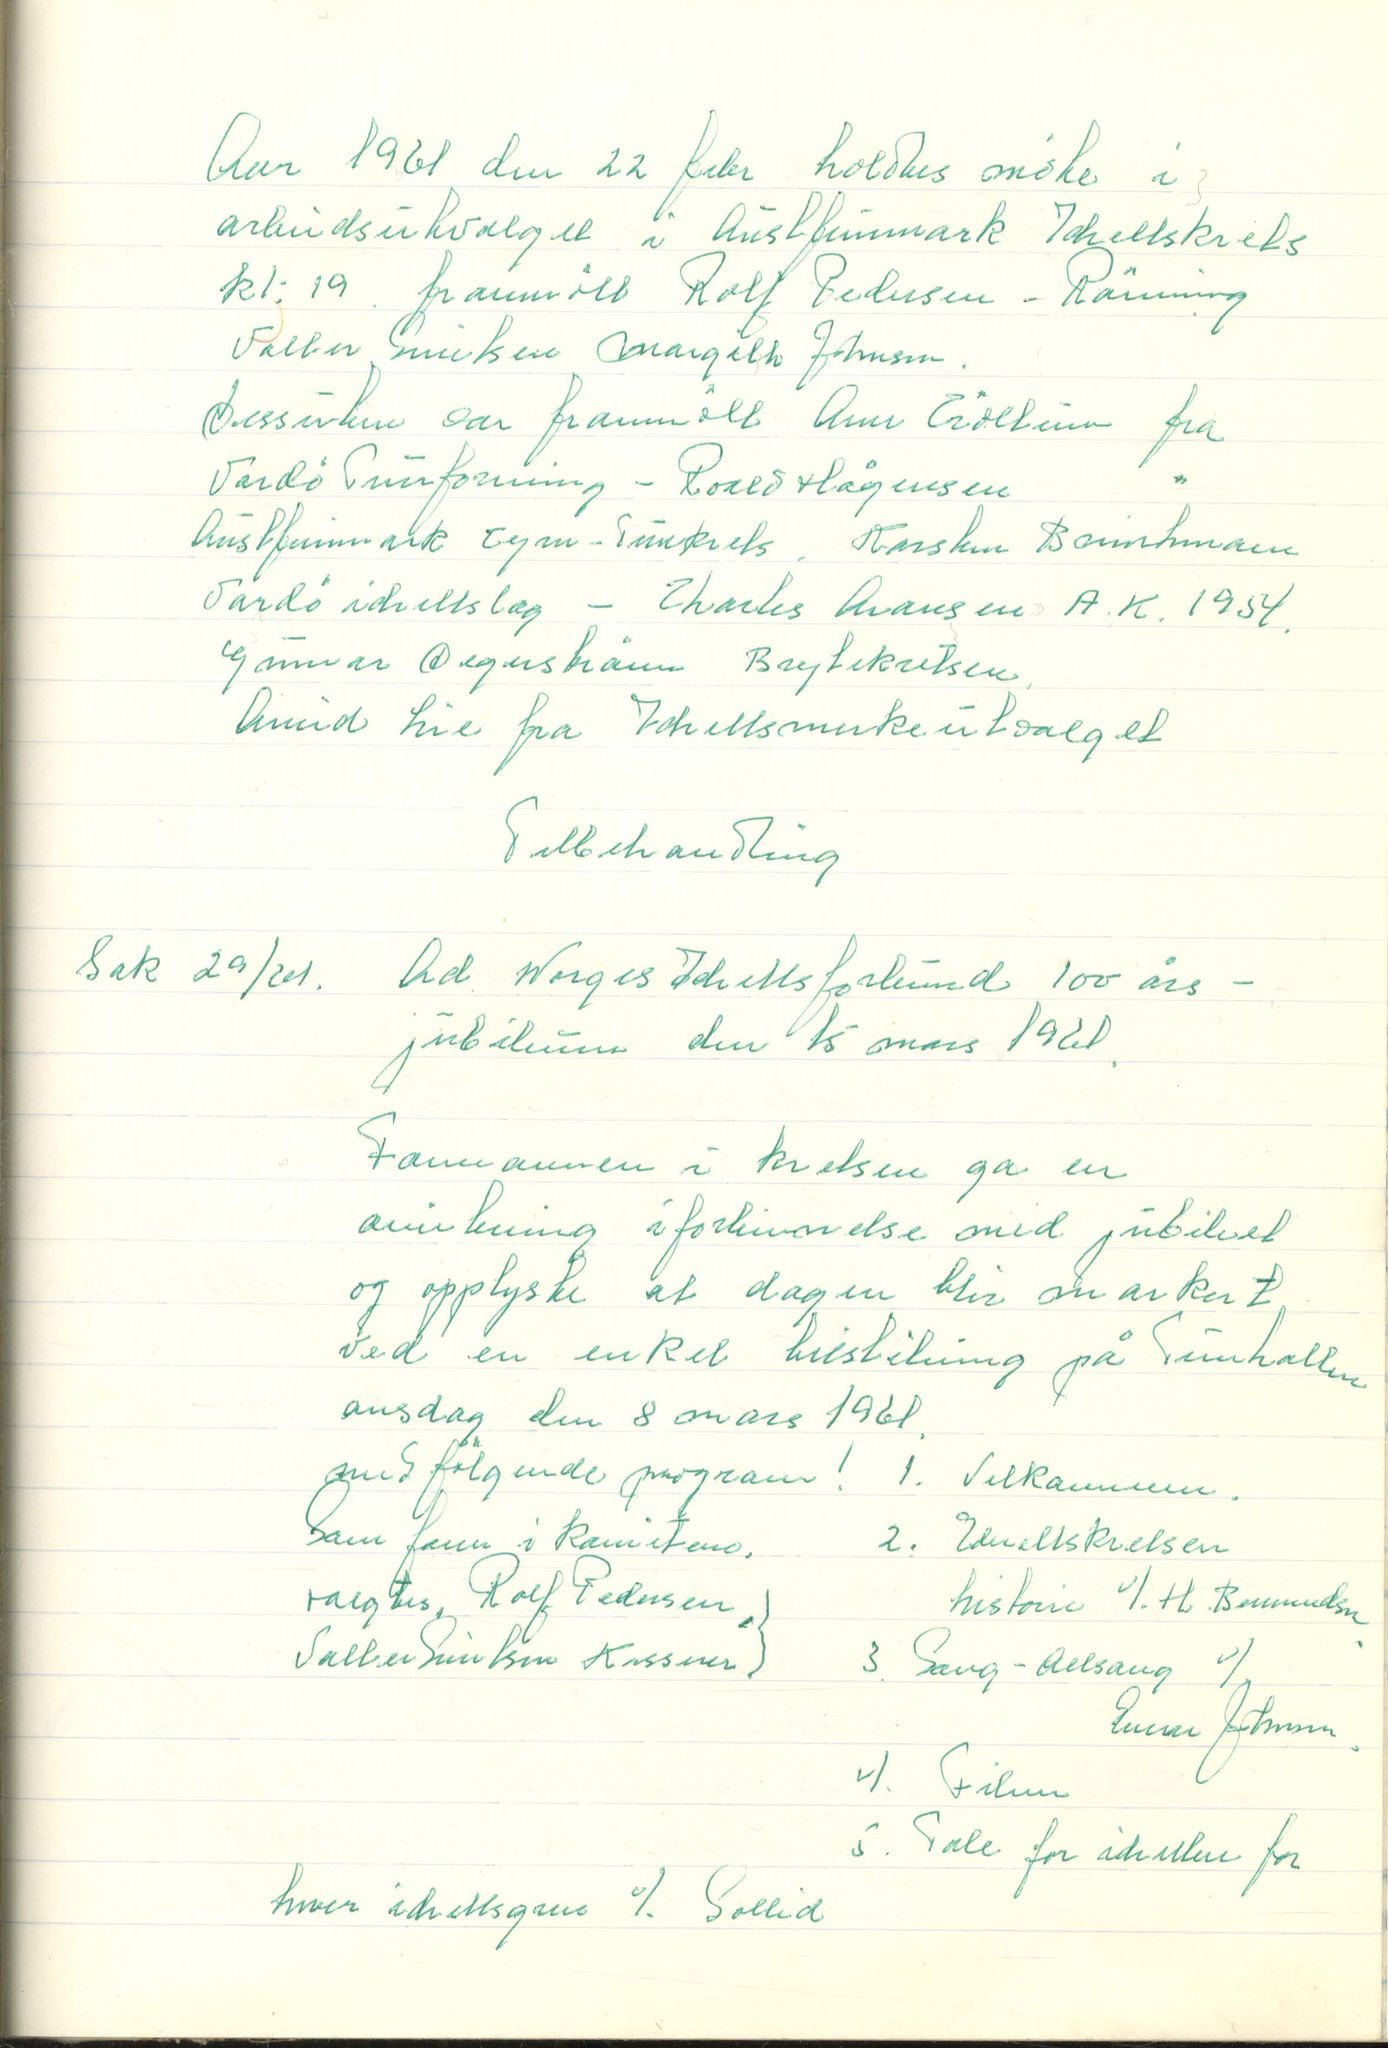 Aar 1961 den 22 febr holdtes møte i
arbeidsutvalget i Austfinnmark Idrettskrets
kl: 19. frammøtt Rolf Pedersen - Rønning
Valter Eriksen Margith Johnsen.
Dessuten var frammøtt Arne fra
Vardø Turnforening - Roald Hågensen "
Austfinnmark Gym-Turnkrets. Karsten Brinchmann
Vardø idrettslag - Charles Aransen A.K. 1954.
Gunnar Degerstrøm Brytekretsen.
Arvid Lie fra Idrettsmerkeutvalget
Til behandling
Sak 29/61. Ad Norges Idrettsforbund 100 års -
jubileum den 15 mars 1961.
Formannen i kretsen ga en
orientering i forbinnelse med jubileet
og opplyste at dagen blir markert
ved en enkel tilstelning på Turnhallen
onsdag den 8 mars 1961.
med følgende program! 1. Velkommen.
Som form i komiteen. 2. Idrettskretsen
valgtes, Rolf Pedersen, historie v/. H. Bermundsen
Valter Eriksen Kasserer) 3. Sang - Allsang v/
Einar Johnsen.
4/. Film
5. Tale for idretten for
hver idrettsgren v/. Sollid